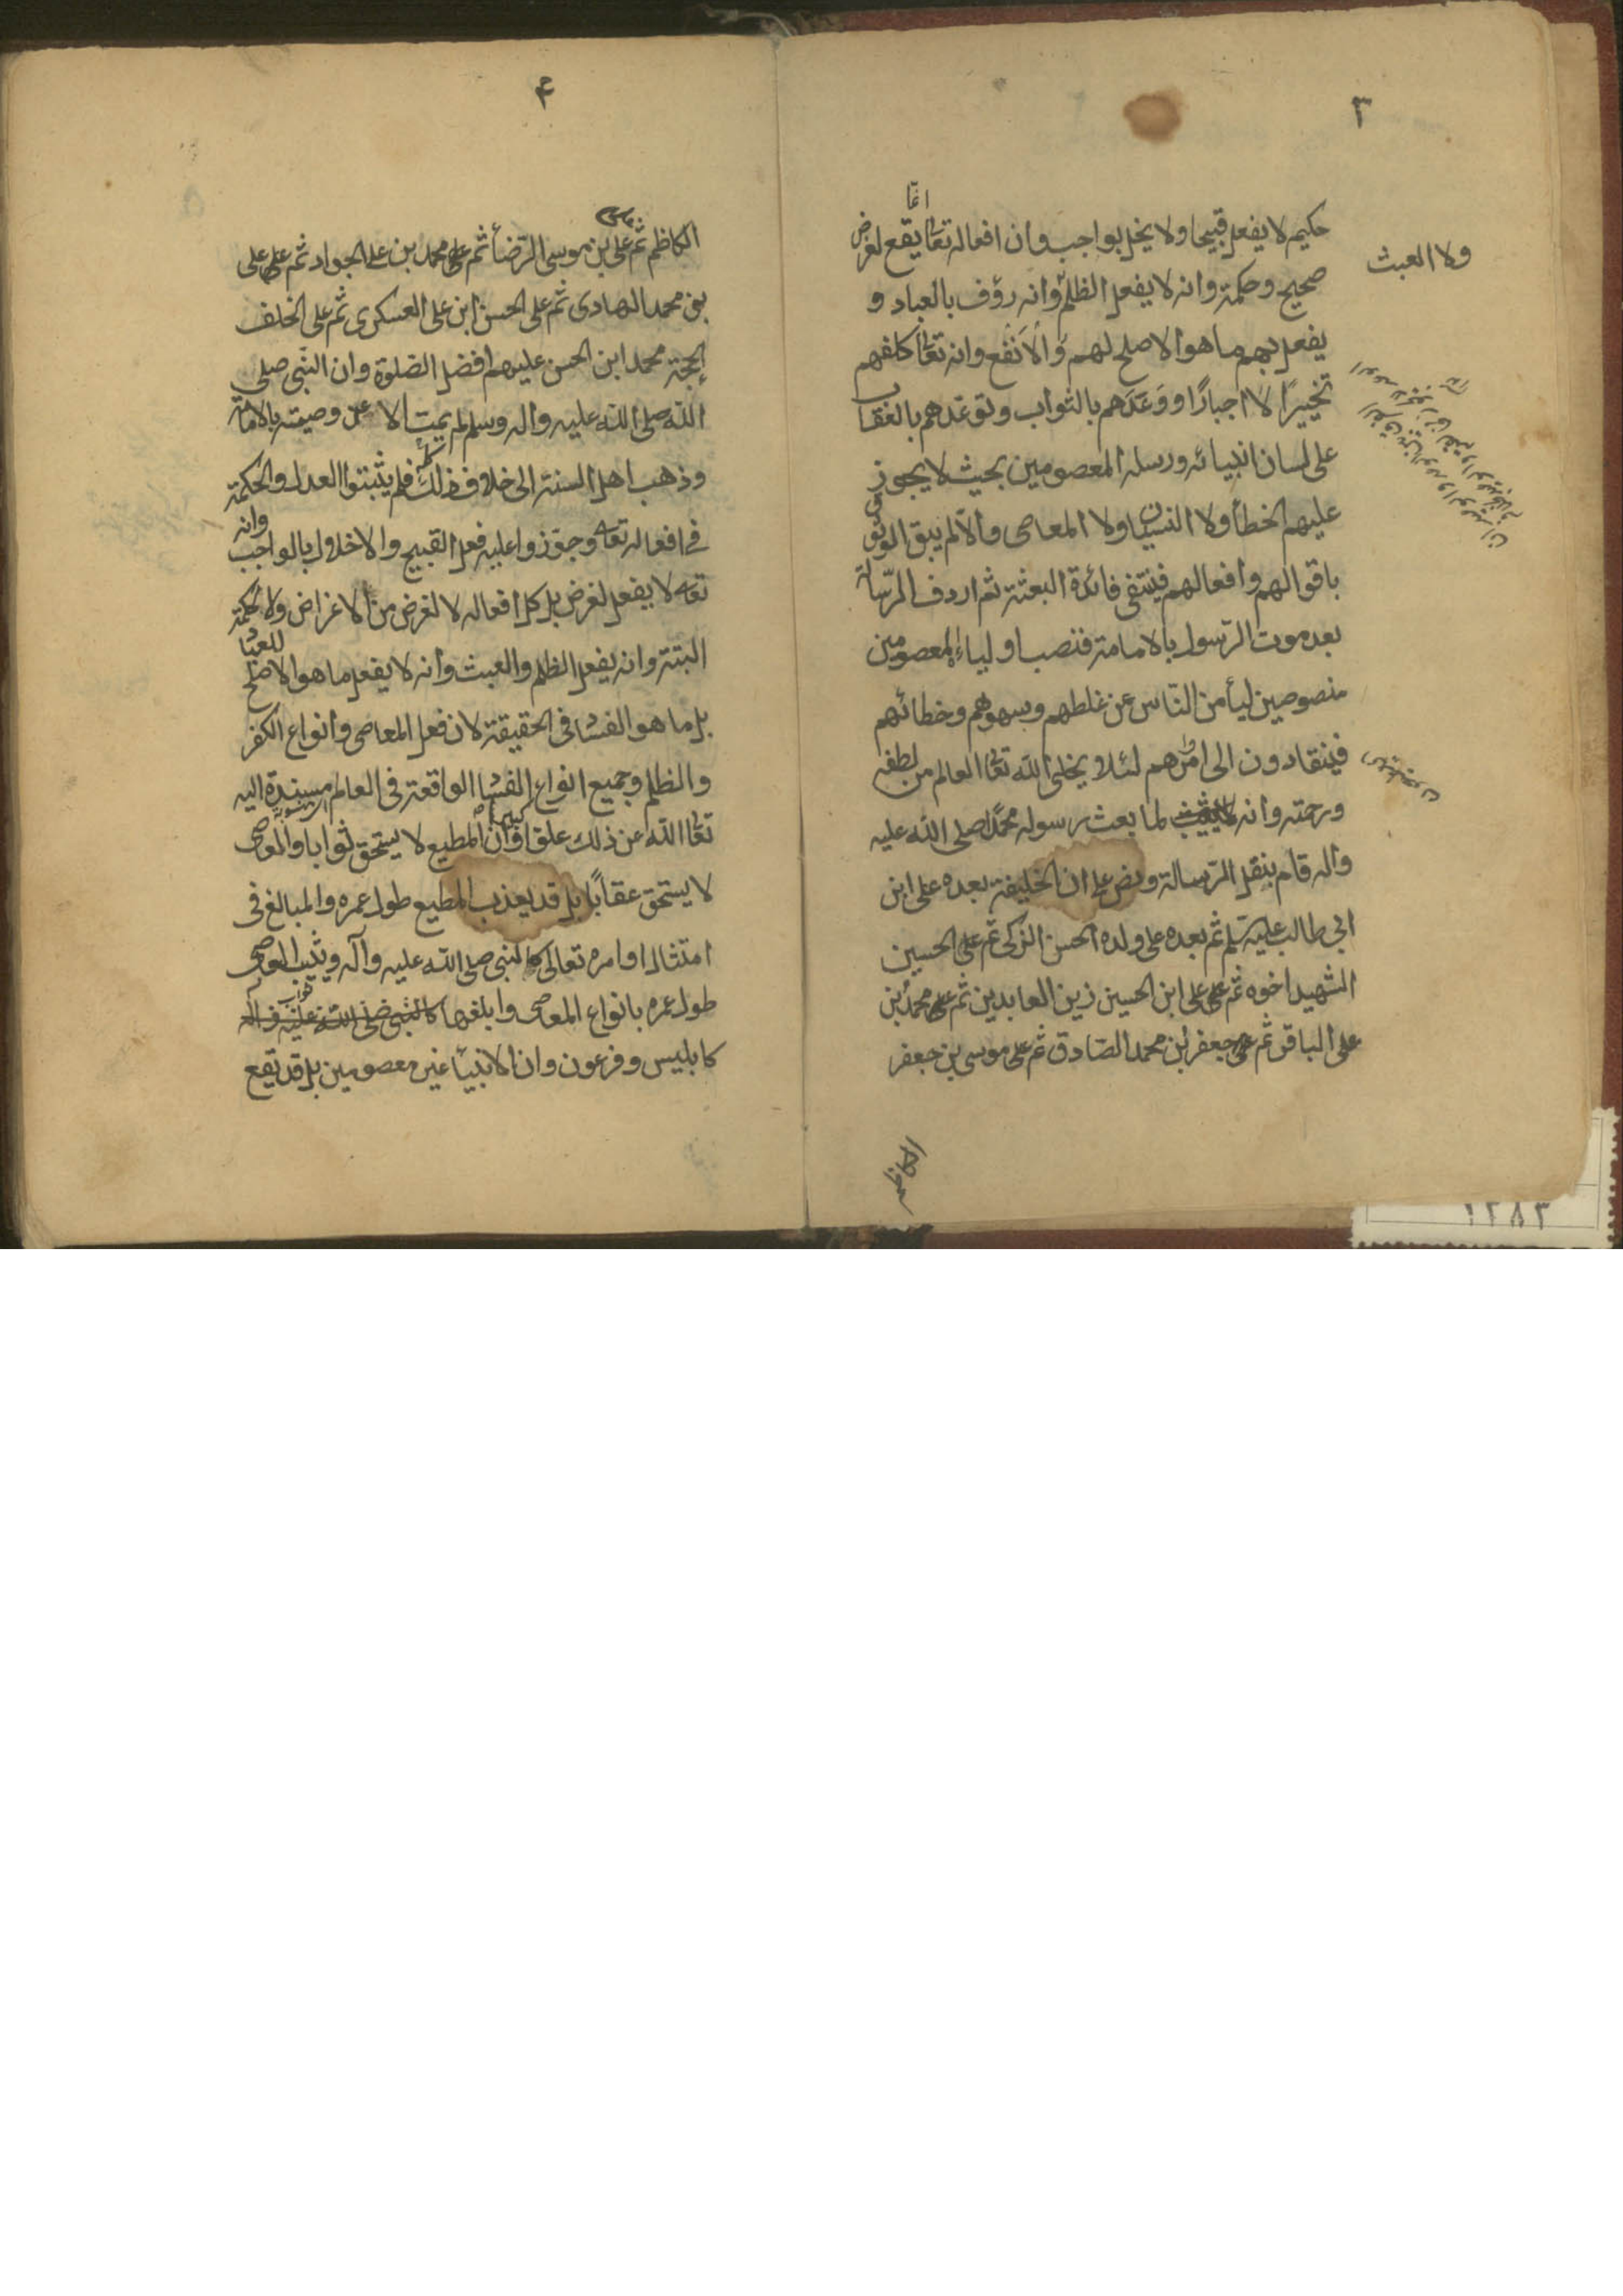 ٣
انما
حكيم لا يفعل قبيحا ولا يخل بواجب وان افعاله تعا يقع لغرض
ولا العبث
صحيح وحكمة وانه لا يفعل الظلم وانه رؤف بالعباد و
يفعل بهم ما هو الاصلح لهم والانفع وانه تعا كلفهم
تخييرًا لا اجبارًا ووَعَدَهم بالثواب وتوعّدهم بالعقاب
على لسان انبيائه ورسله المعصومين بحيث لا يجوز
عليهم الخطأ ولا النسيان ولا المعاصى والّا لم يبق الوثوق
باقوالهم وافعالهم فينتفى فائدة البعثة ثم اردف الرّسالة
بعد موت الرّسول بالامامة فنصب اولياء المعصومين
منصوصين ليأمن النّاس عن غلطهم وسهوهم وخطائهم
فينقادون الى اوامرهم لئلا يخلى الله تعا العالم من لطفه
ورحمته وانه لما بعث رسوله محمّدًا صلى الله عليه
واله قام بنقل الرّسالة ونصّ على ان الخليفة بعده على ابن
ابى طالب عليه سلم ثم بعده على ولده الحسن الزكى ثم على الحسين
الشهيد اخوه ثم على على ابن الحسين زين العابدين ثم على محمد بن
على الباقر ثم على جعفر ابن محمد الصّادق ثم على موسى بن جعفر
الكاظم
۴
الكاظم ثم على بن موسى الرّضا ثم على محمد بن على الجواد ثم على على
بن محمد الهادى ثم على الحسن ابن على العسكرى ثم على الخلف
الحجة محمد ابن الحسن عليهم افضل الصّلوة وان النّبى صلى
الله صلى الله عليه واله وسلم لم يمت الا عن وصيته بالامامة
وذهب اهل السنة الى خلاف ذلك كله فلم يثبتوا العدل والحكمة
فى افعاله تعا وجوّزوا عليه فعل القبيح والاخلال بالواجب وانه
تعا لا يفعل لغرض بل كل افعاله لا لغرض من الاغراض ولا لحكمة
البتة وانه يفعل الظلم والعبث وانه لا يفعل ما هو الاصلح للعباد
بل ما هو الفساد فى الحقيقة لان فعل المعاصى وانواع الكفر
والظلم وجميع انواع الفساد الواقعة فى العالم مسندة اليه
تعا الله عن ذلك علوا كبيرا وان المطيع لا يستحق ثوابا والعاصى
لا يستحق عقابًا بل قد يعذب المطيع طول عمره والمبالغ فى
امتثال اوامره تعالى كالنبى صلى الله عليه وآله ويثيب العاصى
طول عمره بانواع المعاصى وابلغها كالنبى صلى الله عليه واله
كابليس وفرعون وان الانبيا غير معصومين بل قد يقع
١٢٨٣